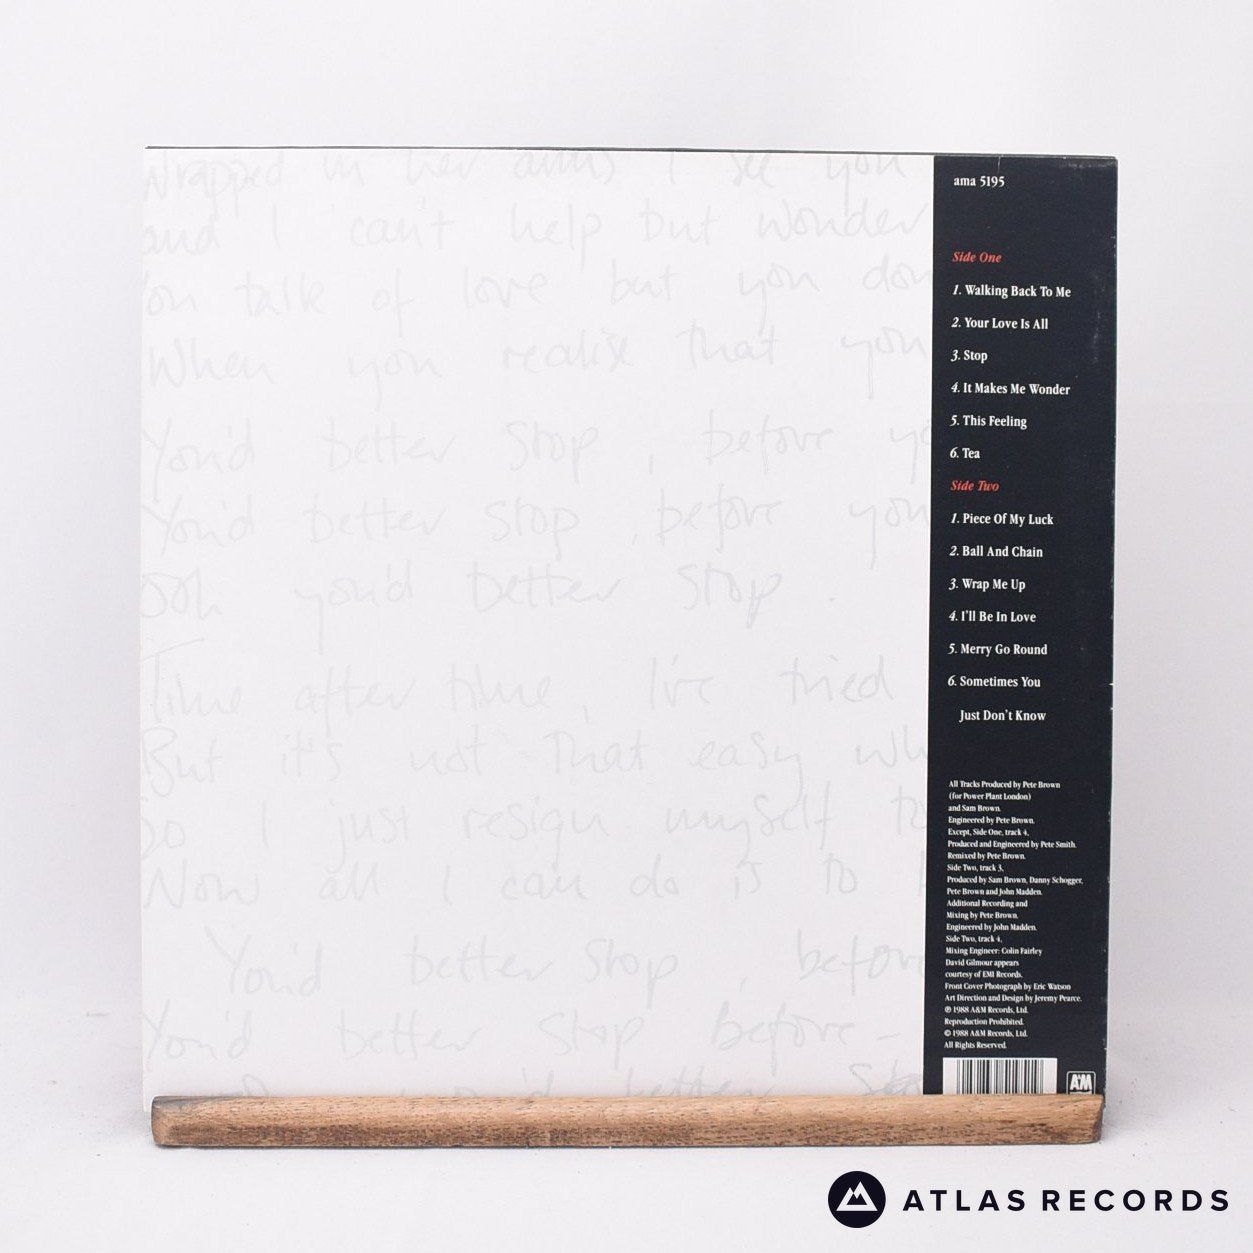 Wrapped in her arms I see you
and I can't help but wonder
you talk of love but you don
When you realise that you
You'd better stop, before yo
You'd better stop, before you
ooh you'd better stop.
Time after time, I've tried
But it's not that easy wh
So I just resign myself to
Now all I can do is to
You'd better stop, before
You'd better stop before -
you'd better Stop
ama 5195
Side One
1. Walking Back To Me
2. Your Love Is All
3. Stop
4. It Makes Me Wonder
5. This Feeling
6. Tea
Side Two
1. Piece Of My Luck
2. Ball And Chain
3. Wrap Me Up
4. I'll Be In Love
5. Merry Go Round
6. Sometimes You
Just Don't Know
All Tracks Produced by Pete Brown
(for Power Plant London)
and Sam Brown.
Engineered by Pete Brown.
Except, Side One, track 4,
Produced and Engineered by Pete Smith.
Remixed by Pete Brown.
Side Two, track 3,
Produced by Sam Brown, Danny Schogger,
Pete Brown and John Madden.
Additional Recording and
Mixing by Pete Brown,
Engineered by John Madden.
Side Two, track 4,
Mixing Engineer: Colin Fairley
David Gilmour appears
courtesy of EMI Records.
Front Cover Photograph by Eric Watson
Art Direction and Design by Jeremy Pearce.
℗ 1988 A&M Records, Ltd.
Reproduction Prohibited.
© 1988 A&M Records, Ltd.
All Rights Reserved.
A&M
ATLAS RECORDS